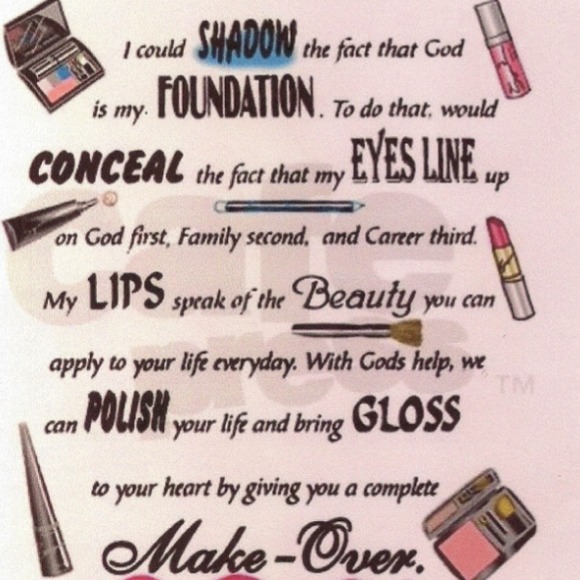 I could SHADOW the fact that God
is my FOUNDATION. To do that, would
CONCEAL the fact that my EYES LINE up
on God first, Family second, and Career third.
My LIPS speak of the Beauty you can
apply to your life everyday. With Gods help, we
can POLISH your life and bring GLOSS
to your heart by giving you a complete
Make-Over.
cafe
press
TM